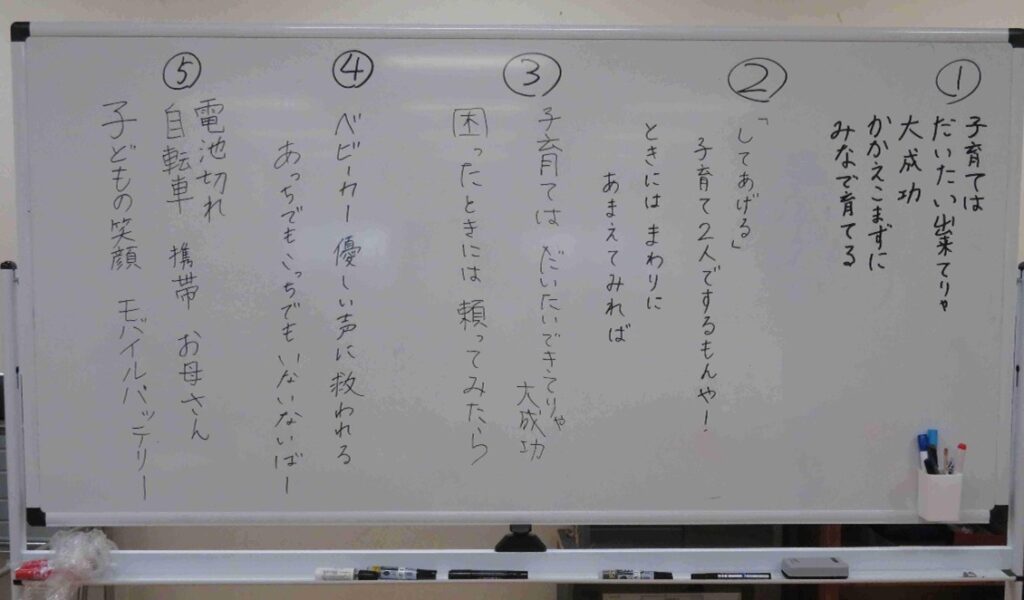 ①
子育ては
だいたい出来てりゃ
大成功
かかえこまずに
みなで育てる
②
「してあげる」
子育て2人でするもんや!
ときには まわりに
あまえてみれば
③
子育ては だいたいできてりゃ
大成功
困ったときには 頼ってみたら
④
ベビーカー 優しい声に 救われる
あっちでもこっちでも いないいないばー
⑤
電池切れ
自転車 携帯 お母さん
子どもの笑顔 モバイルバッテリー